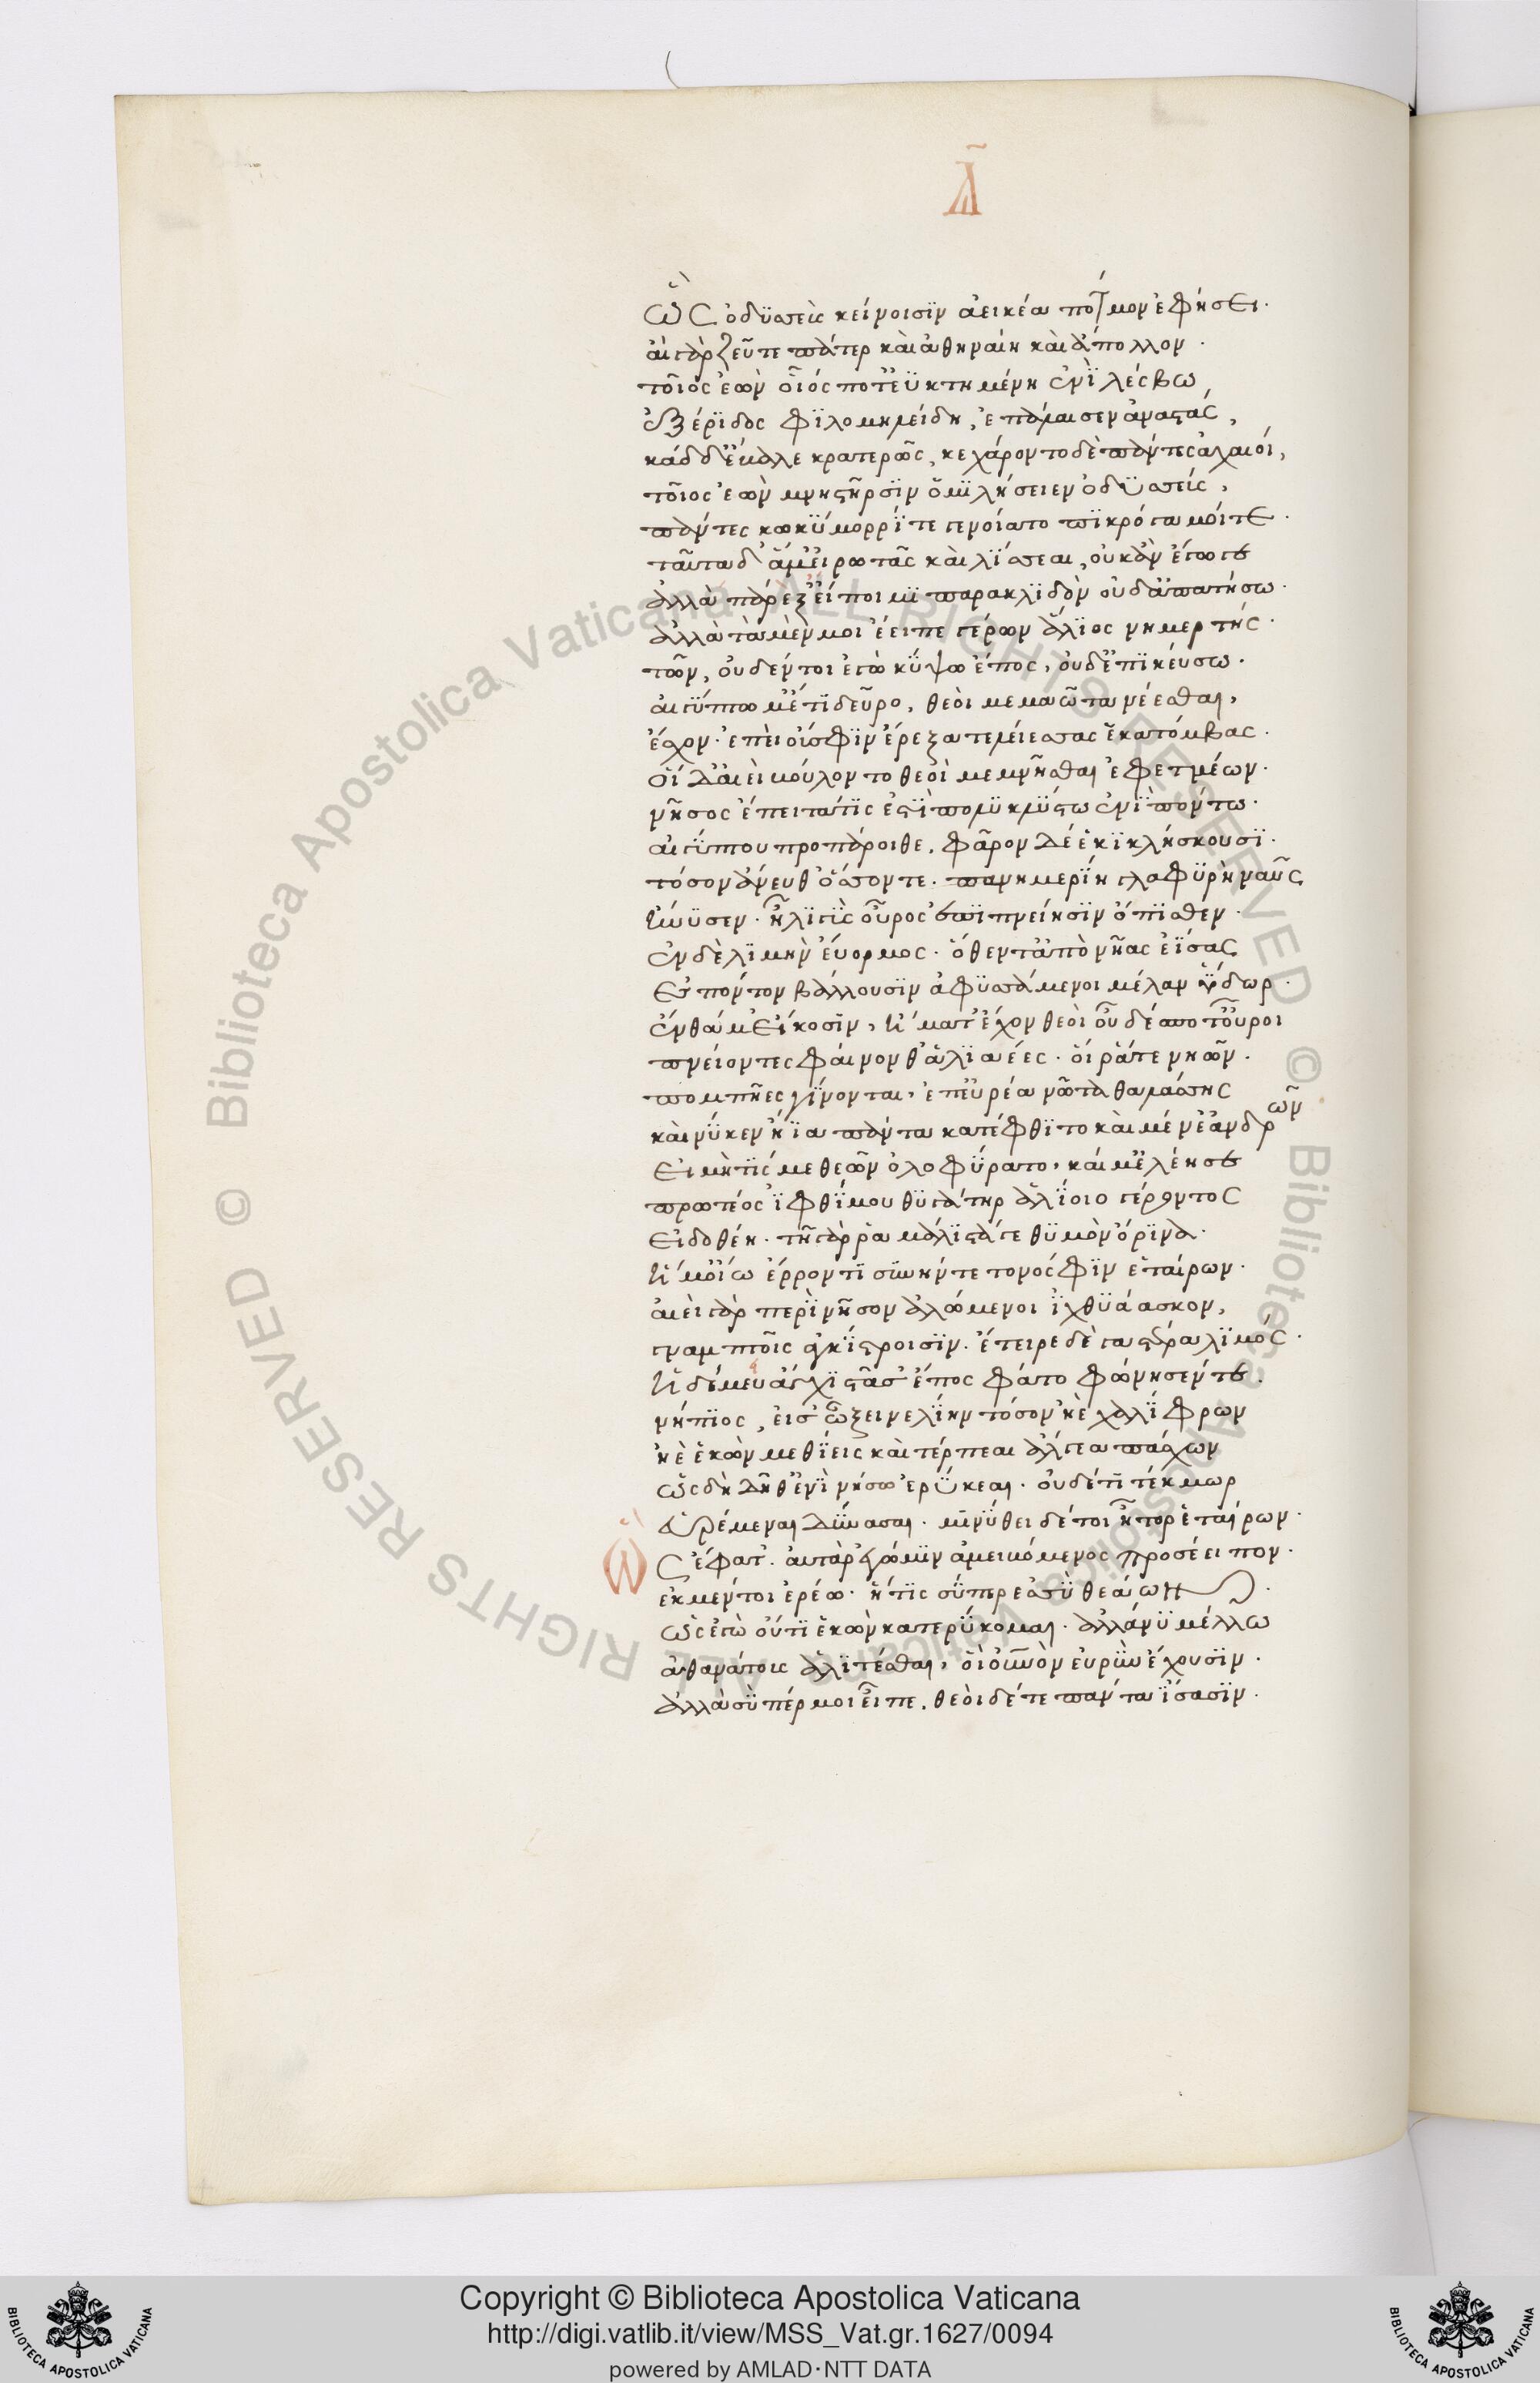 Δ
ὣς ὀδυσεὺς κείνοισιν ἀεικέα πότμον ἐφήσει·
αἲ γὰρ ζεῦτε πάτερ καὶ ἀθηναίη καὶ ἄπολλον·
τοῖος ἐὼν οἷός ποτ' ἐϋκτημένῃ ἐνὶ λέσβω
ἐξ ἔριδος φιλομηλείδῃ, ἐπάλαισεν ἀναστάς,
κὰδ δ' ἔβαλε κρατερῶς, κεχάροντο δὲ πάντες ἀχαιοί,
τοῖος ἐὼν μνηστῆρσιν ὁμιλήσειεν ὀδυσσεύς,
πάντες κ' ὠκύμοροί τε γενοίατο πικρόγαμοί τε·
ταῦτα δ' ἅ μ' εἰρωτᾶς καὶ λίσσεαι, οὐκ ἂν ἔγωγε
ἄλλα παρὲξ εἴποιμι παρακλιδὸν οὐδ' ἀπατήσω·
ἀλλὰ τὰ μέν μοι ἔειπε γέρων ἅλιος νημερτής·
τῶν, οὐδέν τοι ἐγὼ κρύψω ἔπος, οὐδ' ἐπικεύσω·
αἰγύπτω μ' ἔτι δεῦρο, θεοὶ μεμαῶτα νέεσθαι,
ἔσχον· ἐπεὶ οὔ σφιν ἔρεξα τελείεσσας ἑκατόμβας·
οἱ δ' αἰεὶ βούλοντο θεοὶ μεμνῆσθαι ἐφετμέων·
νῆσος ἔπειτά τις ἐστὶ πολυκλύστω ἐνὶ πόντω·
αἰγύπτου προπάροιθε, φᾶρον δέ ἑ κικλήσκουσι·
τόσον ἄνευθ' ὅσσον τε· πανημερίη γλαφυρὴ νηῦς
ἤνυσεν· ἧ λιγὺς οὖρος ἐπιπνείησιν ὄπισθεν·
ἐν δὲ λιμὴν εὔορμος· ὅθεν τ' ἀπὸ νῆας ἐΐσας
ἐς πόντον βάλλουσιν ἀφυσσάμενοι μέλαν ὕδωρ·
ἔνθα μ' ἐείκοσιν, ἤματ' ἔχον θεοὶ οὐδέ ποτ' οὖροι
πνείοντες φαίνονθ' ἁλιαέες· οἵ ῥά τε νηῶν·
πομπῆες γίνονται, ἐπ' εὐρέα νῶτα θαλάσσης
καί νύ κεν ἤϊα πάντα κατέφθιτο καὶ μένε' ἀνδρῶν
εἰ μή τίς με θεῶν ὀλοφύρατο, καί μ' ἐλέησε
πρωτέος ἰφθίμου θυγάτηρ ἁλίοιο γέροντος
εἰδοθέη· τῇ γάρ ῥα μάλιστά γε θυμὸν ὄρινα·
ἥ μ' οἴω ἔρροντι συνήντετο νόσφιν ἑταίρων·
αἰεὶ γὰρ περὶ νῆσον ἀλώμενοι ἰχθυάασκον,
γναμπτοῖς ἀγκίστροισιν· ἔτειρε δὲ γαστέρα λιμός·
ἡ δέ μευ ἄγχι στᾶσ' ἔπος φάτο φώνησέν τε·
νήπιος, εἰς ὦ ξεῖνε λίην τόσον ἠὲ χαλίφρων
ἠὲ ἑκὼν μεθίεις καὶ τέρπεαι ἄλγεα πάσχων
ὡς δὴ δήθ' ἐνὶ νήσω ἐρύκεαι· οὐδέ τι τέκμωρ
εὑρέμεναι δύνασαι· μινύθει δέ τοι ἦτορ ἑταίρων·
ὣς ἔφατ'· αὐτὰρ ἐγώ μιν ἀμειβόμενος προσέειπον·
ἐκ μέν τοι ἐρέω· ἥτις σύ πέρ ἐσσὶ θεάων·
ὡς ἐγὼ οὔτι ἑκὼν κατερύκομαι· ἀλλά νυ μέλλω
ἀθανάτους ἀλιτέσθαι, οἳ οὐρανὸν εὐρὺν ἔχουσιν·
ἀλλὰ σύ πέρ μοι εἶπε, θεοὶ δέ τε πάντα ἴσασιν·
Copyright © Biblioteca Apostolica Vaticana
http://digi.vatlib.it/view/MSS_Vat.gr.1627/0094
powered by AMLAD·NTT DATA